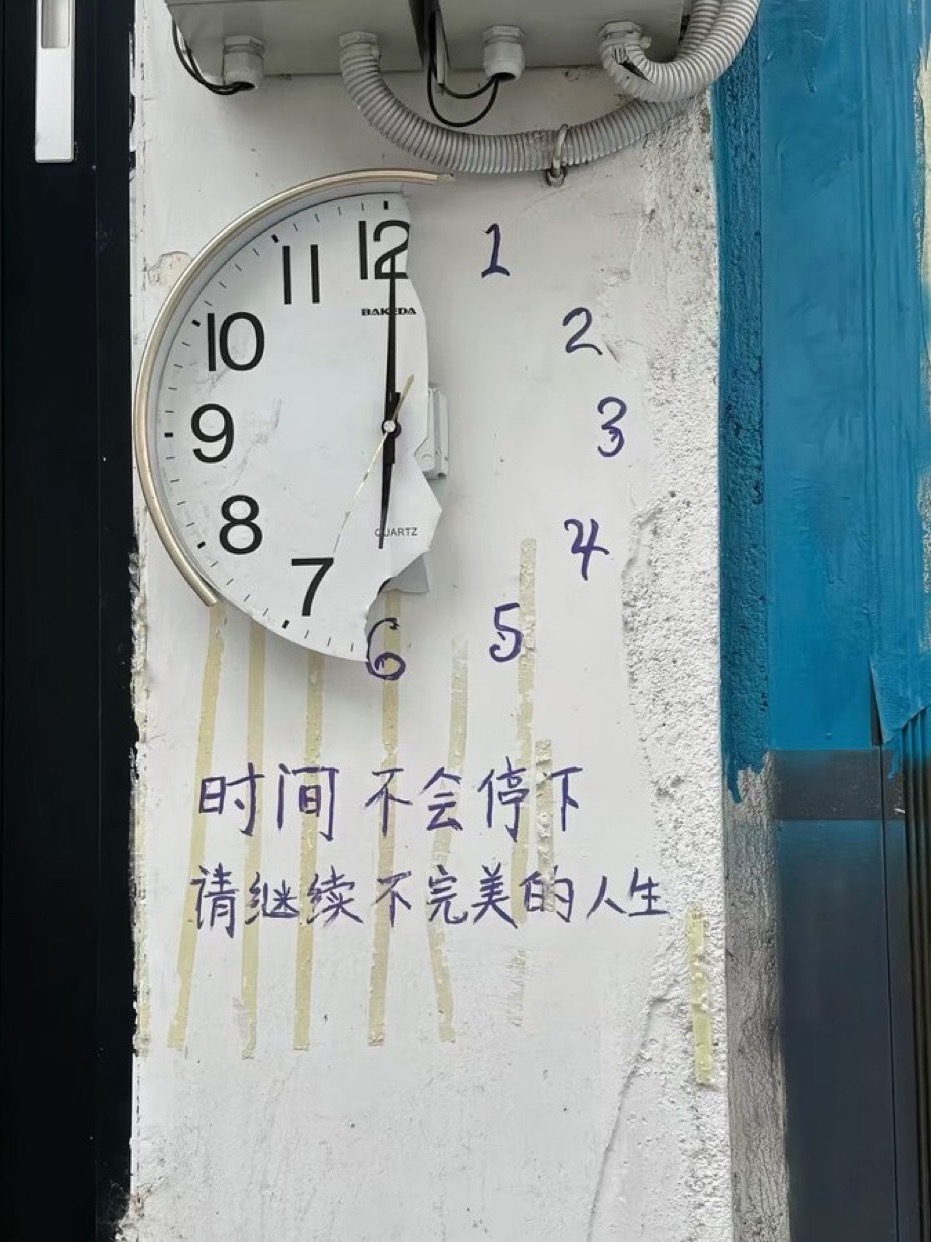 12
11
1
BAKEDA
10
2
9
3
8
4
QUARTZ
7
6
5
时间不会停下
请继续不完美的人生